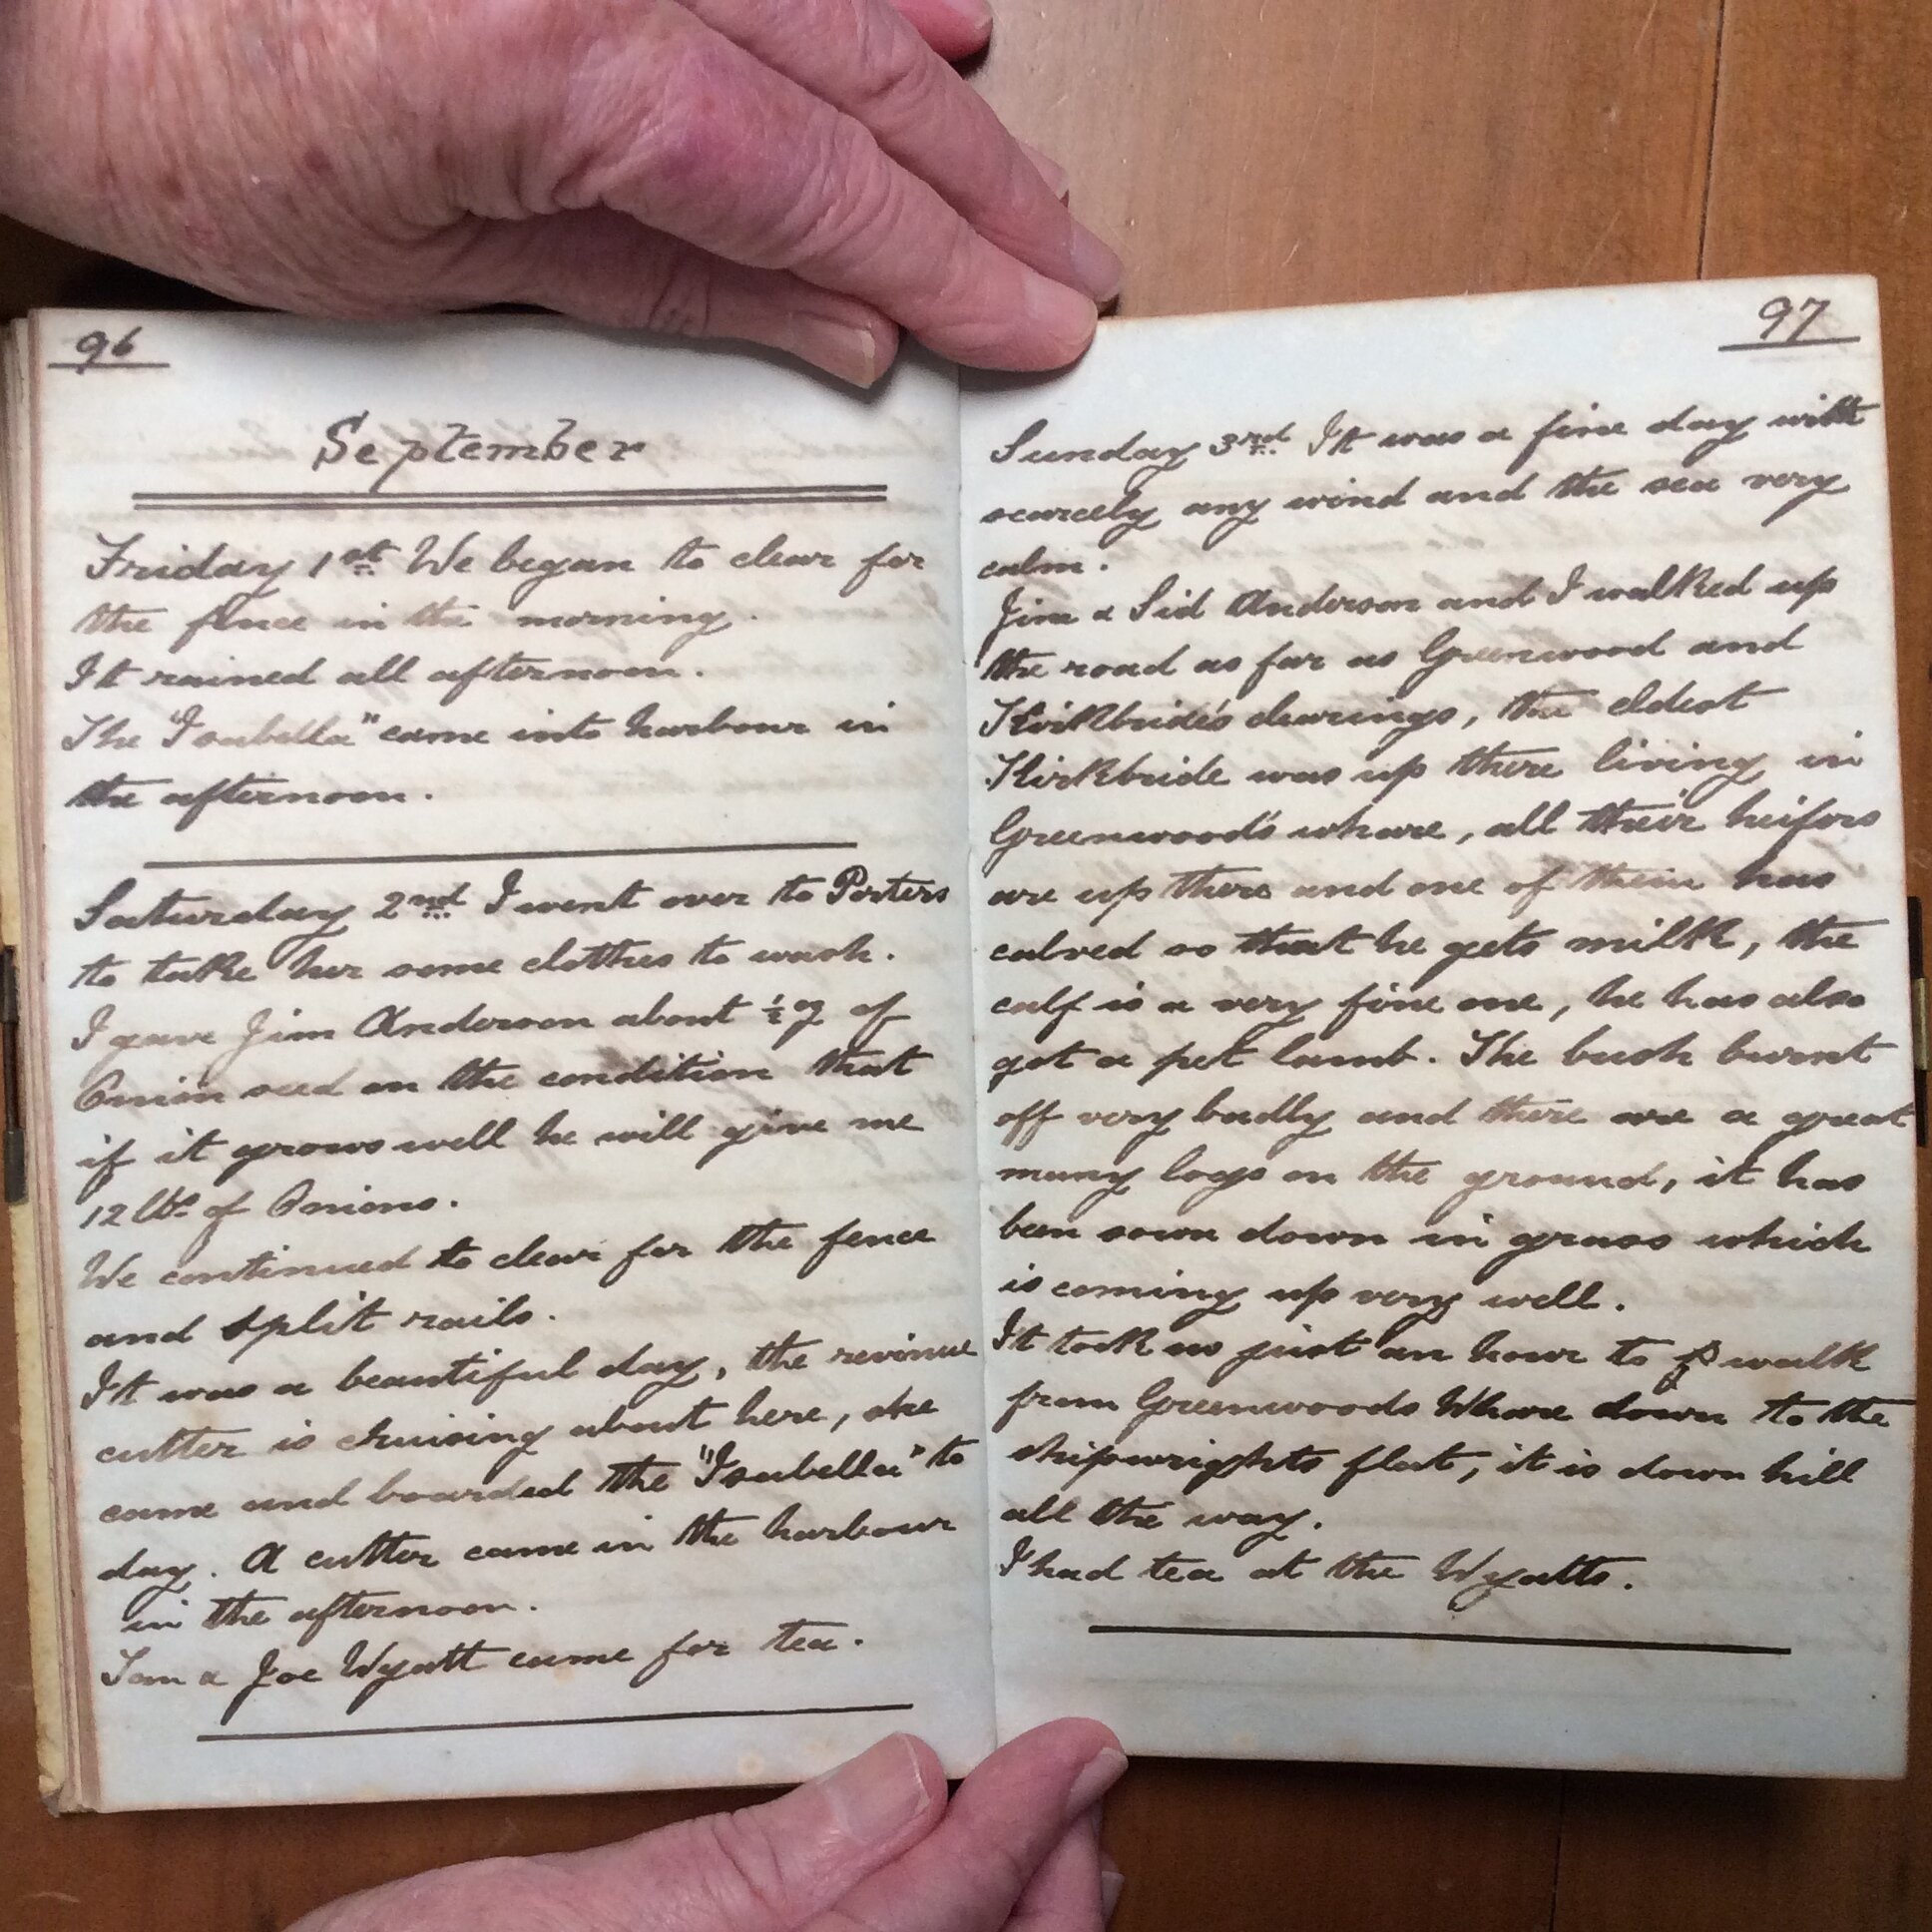 96
September
Friday 1st We began to clear for
the fence in the morning.
It rained all afternoon.
The "Isabella" came into harbour in
the afternoon.
Saturday 2nd I went over to Porters
to take her some clothes to wash.
I gave Jim Anderson about ½ oz of
Onion seed on the condition that
if it grows well he will give me
12 lbs of Onions.
We continued to clear for the fence
and split rails.
It was a beautiful day, the revinue
cutter is chuising about here, she
came and boarded the "Isabella" to
day. A cutter came in the harbour
in the afternoon.
Tom & Joe Wyatt came for tea.
97
Sunday 3rd It was a fine day with
scarcely any wind and the sea very
calm.
Jim & Sid Anderson and I walked up
the road as far as Greenwood and
Kirkbride's clearings, the eldest
Kirkbride was up there living in
Greenwood's whare, all their heifers
are up there and one of them has
calved so that he gets milk, the
calf is a very fine one, he has also
got a pet lamb. The bush burnt
off very badly and there are a great
many logs on the ground, it has
been sown down in grass which
is coming up very well.
It took us just an hour to walk
from Greenwoods Whare down to the
shipwrights flat, it is down hill
all the way.
I had tea at the Wyatts.